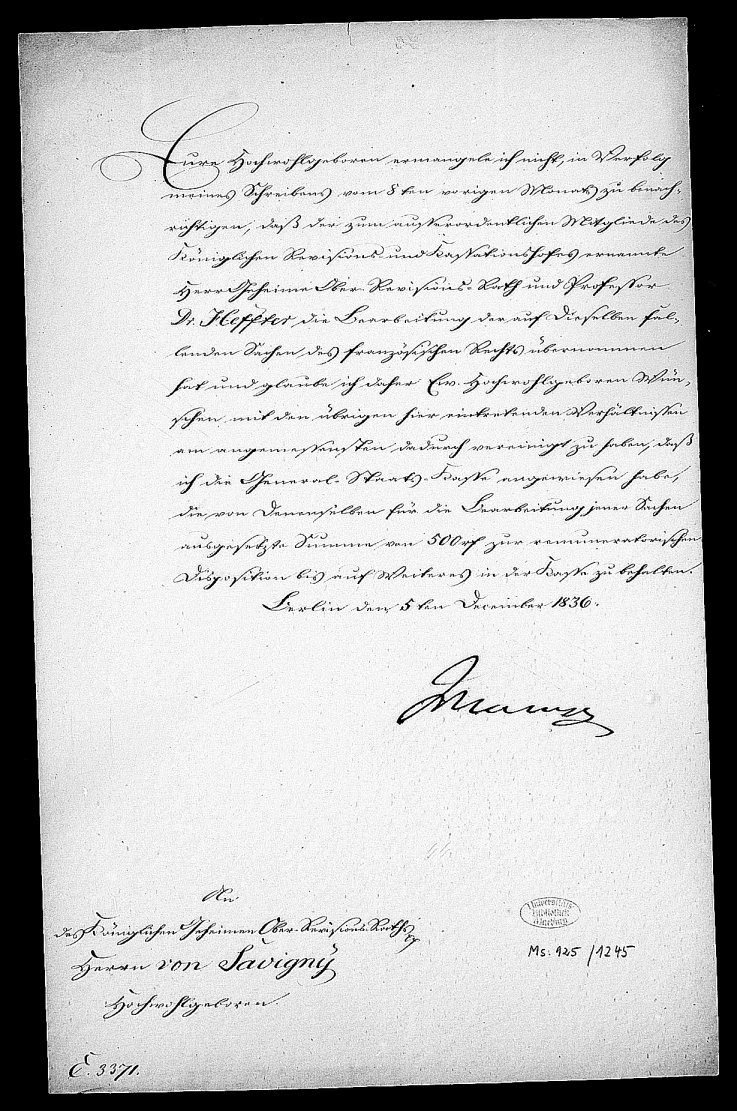 Eure Hochwohlgeboren ermangele ich nicht, in Verfolg
meines Schreibens vom 8ten vorigen Monats zu benach-
richtigen, daß der zum ausserordentlichen Mitgliede des
Königlichen Revisions- und Kassationshofes ernannte
Herr Geheime Ober-Revisions-Rath und Professor
Dr. Heffter, die Bearbeitung der auf Dieselben fal-
lenden Sachen des französischen Rechts übernommen
hat und glaube ich daher Ew. Hochwohlgeboren Wün-
schen mit den übrigen hier eintretenden Verhältnissen
am angemessensten dadurch vereinigt zu haben, daß
ich die General-Staats-Kasse angewiesen habe,
die von Denenselben für die Bearbeitung jener Sachen
ausgesetzte Summe von 500 rf zur remuneratorischen
Disposition bis auf Weiteres in der Kasse zu behalten.
Berlin den 5ten December 1836.
An
des Königlichen Geheimen Ober-Revisions-Raths
Herrn von Savigny
Hochwohlgeboren.
E. 3371.
Universitäts
Bibliothek
Marburg
Ms. 925/1245